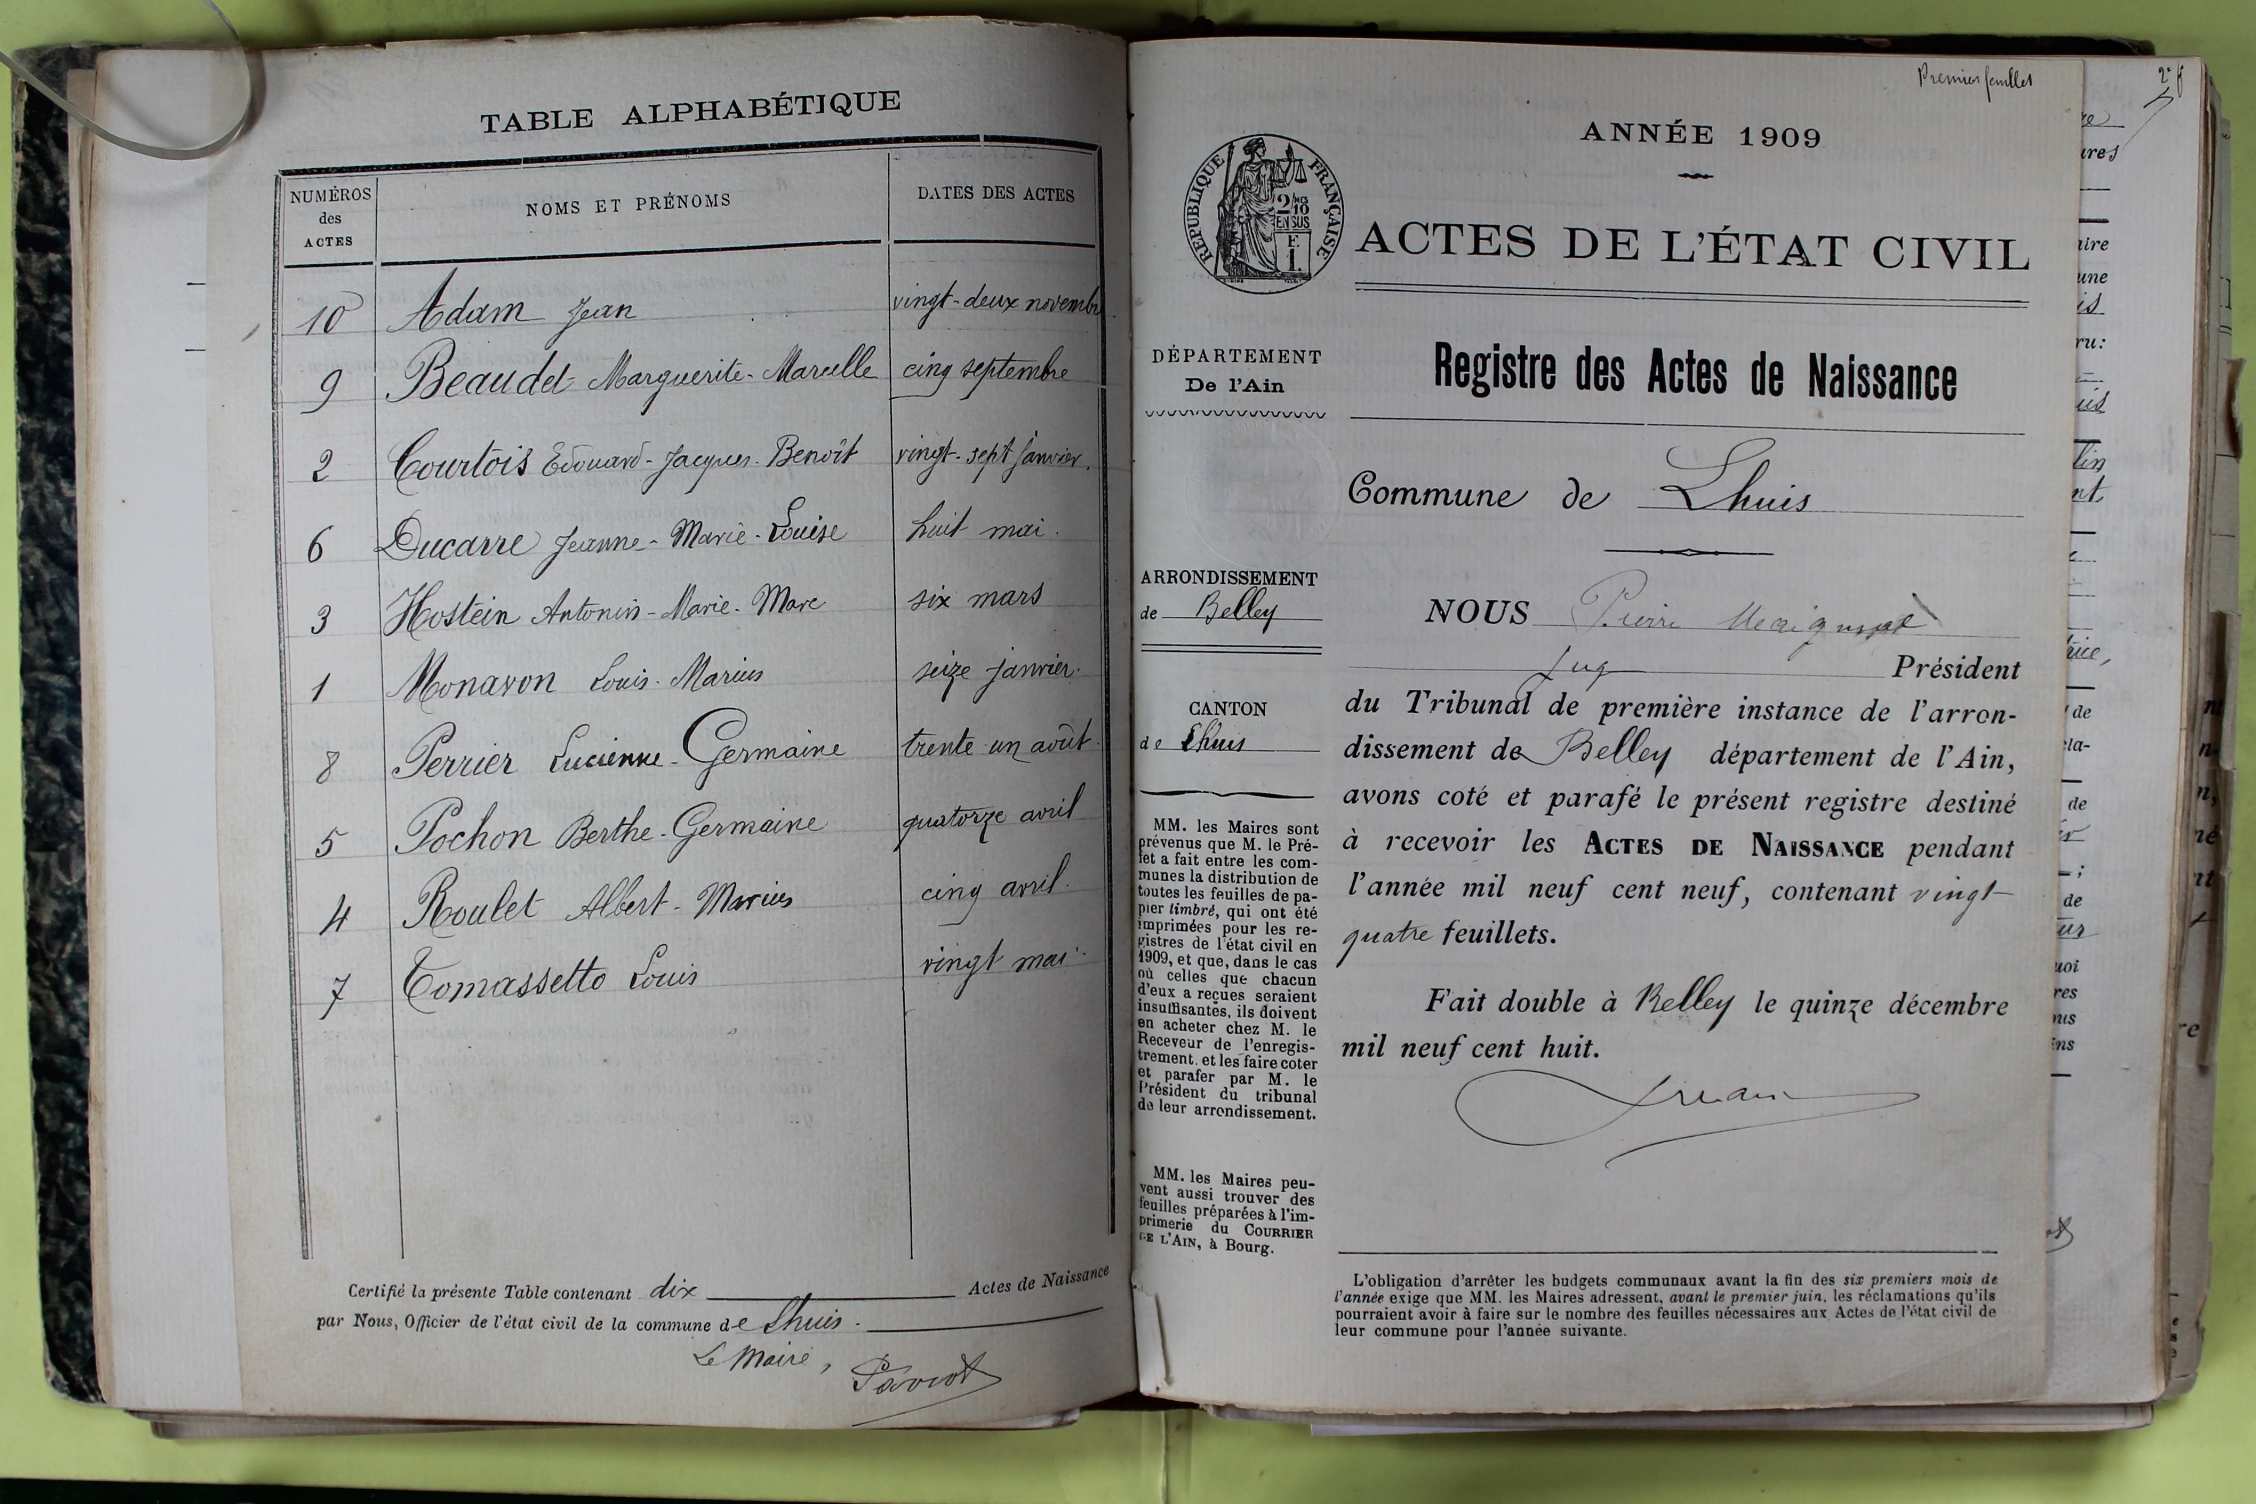 TABLE ALPHABÉTIQUE
NUMÉROS des ACTES NOMS ET PRÉNOMS DATES DES ACTES
10 Adam Jean vingt-deux novembre
9 Beaudet Marguerite-Marcelle cinq septembre
2 Courtois Edouard-Jacques-Benoît vingt-sept janvier.
6 Ducarre Jeanne-Marie-Louise huit mai.
3 Hostein Antonin-Marie-Marc six mars
1 Monavon Louis-Marius seize janvier.
8 Perrier Lucienne-Germaine trente un août.
5 Pochon Berthe-Germaine quatorze avril
4 Roulet Albert-Marius cinq avril.
7 Tomassetto Louis vingt mai.
Certifié la présente Table contenant dix Actes de Naissance
par Nous, Officier de l'état civil de la commune de Lhuis.
Le Maire,
Premier feuillet
ANNÉE 1909
RÉPUBLIQUE FRANÇAISE
2/10
EN SUS
ACTES DE L'ÉTAT CIVIL
DÉPARTEMENT
De l'Ain
Registre des Actes de Naissance
Commune de Lhuis
ARRONDISSEMENT
de Belley
CANTON
de Lhuis
MM. les Maires sont
prévenus que M. le Pré-
fet a fait entre les com-
munes la distribution de
toutes les feuilles de pa-
pier timbré, qui ont été
imprimées pour les re-
gistres de l'état civil en
1909, et que, dans le cas
où celles que chacun
d'eux a reçues seraient
insuffisantes, ils doivent
en acheter chez M. le
Receveur de l'enregis-
trement, et les faire coter
et parafer par M. le
Président du tribunal
de leur arrondissement.
MM. les Maires peu-
vent aussi trouver des
feuilles préparées à l'im-
primerie du COURRIER
DE L'AIN, à Bourg.
NOUS Pierre
Président
du Tribunal de première instance de l'arron-
dissement de Belley département de l'Ain,
avons coté et parafé le présent registre destiné
à recevoir les ACTES DE NAISSANCE pendant
l'année mil neuf cent neuf, contenant vingt
quatre feuillets.
Fait double à Belley le quinze décembre
mil neuf cent huit.
L'obligation d'arrêter les budgets communaux avant la fin des six premiers mois de
l'année exige que MM. les Maires adressent, avant le premier juin, les réclamations qu'ils
pourraient avoir à faire sur le nombre des feuilles nécessaires aux Actes de l'état civil de
leur commune pour l'année suivante.